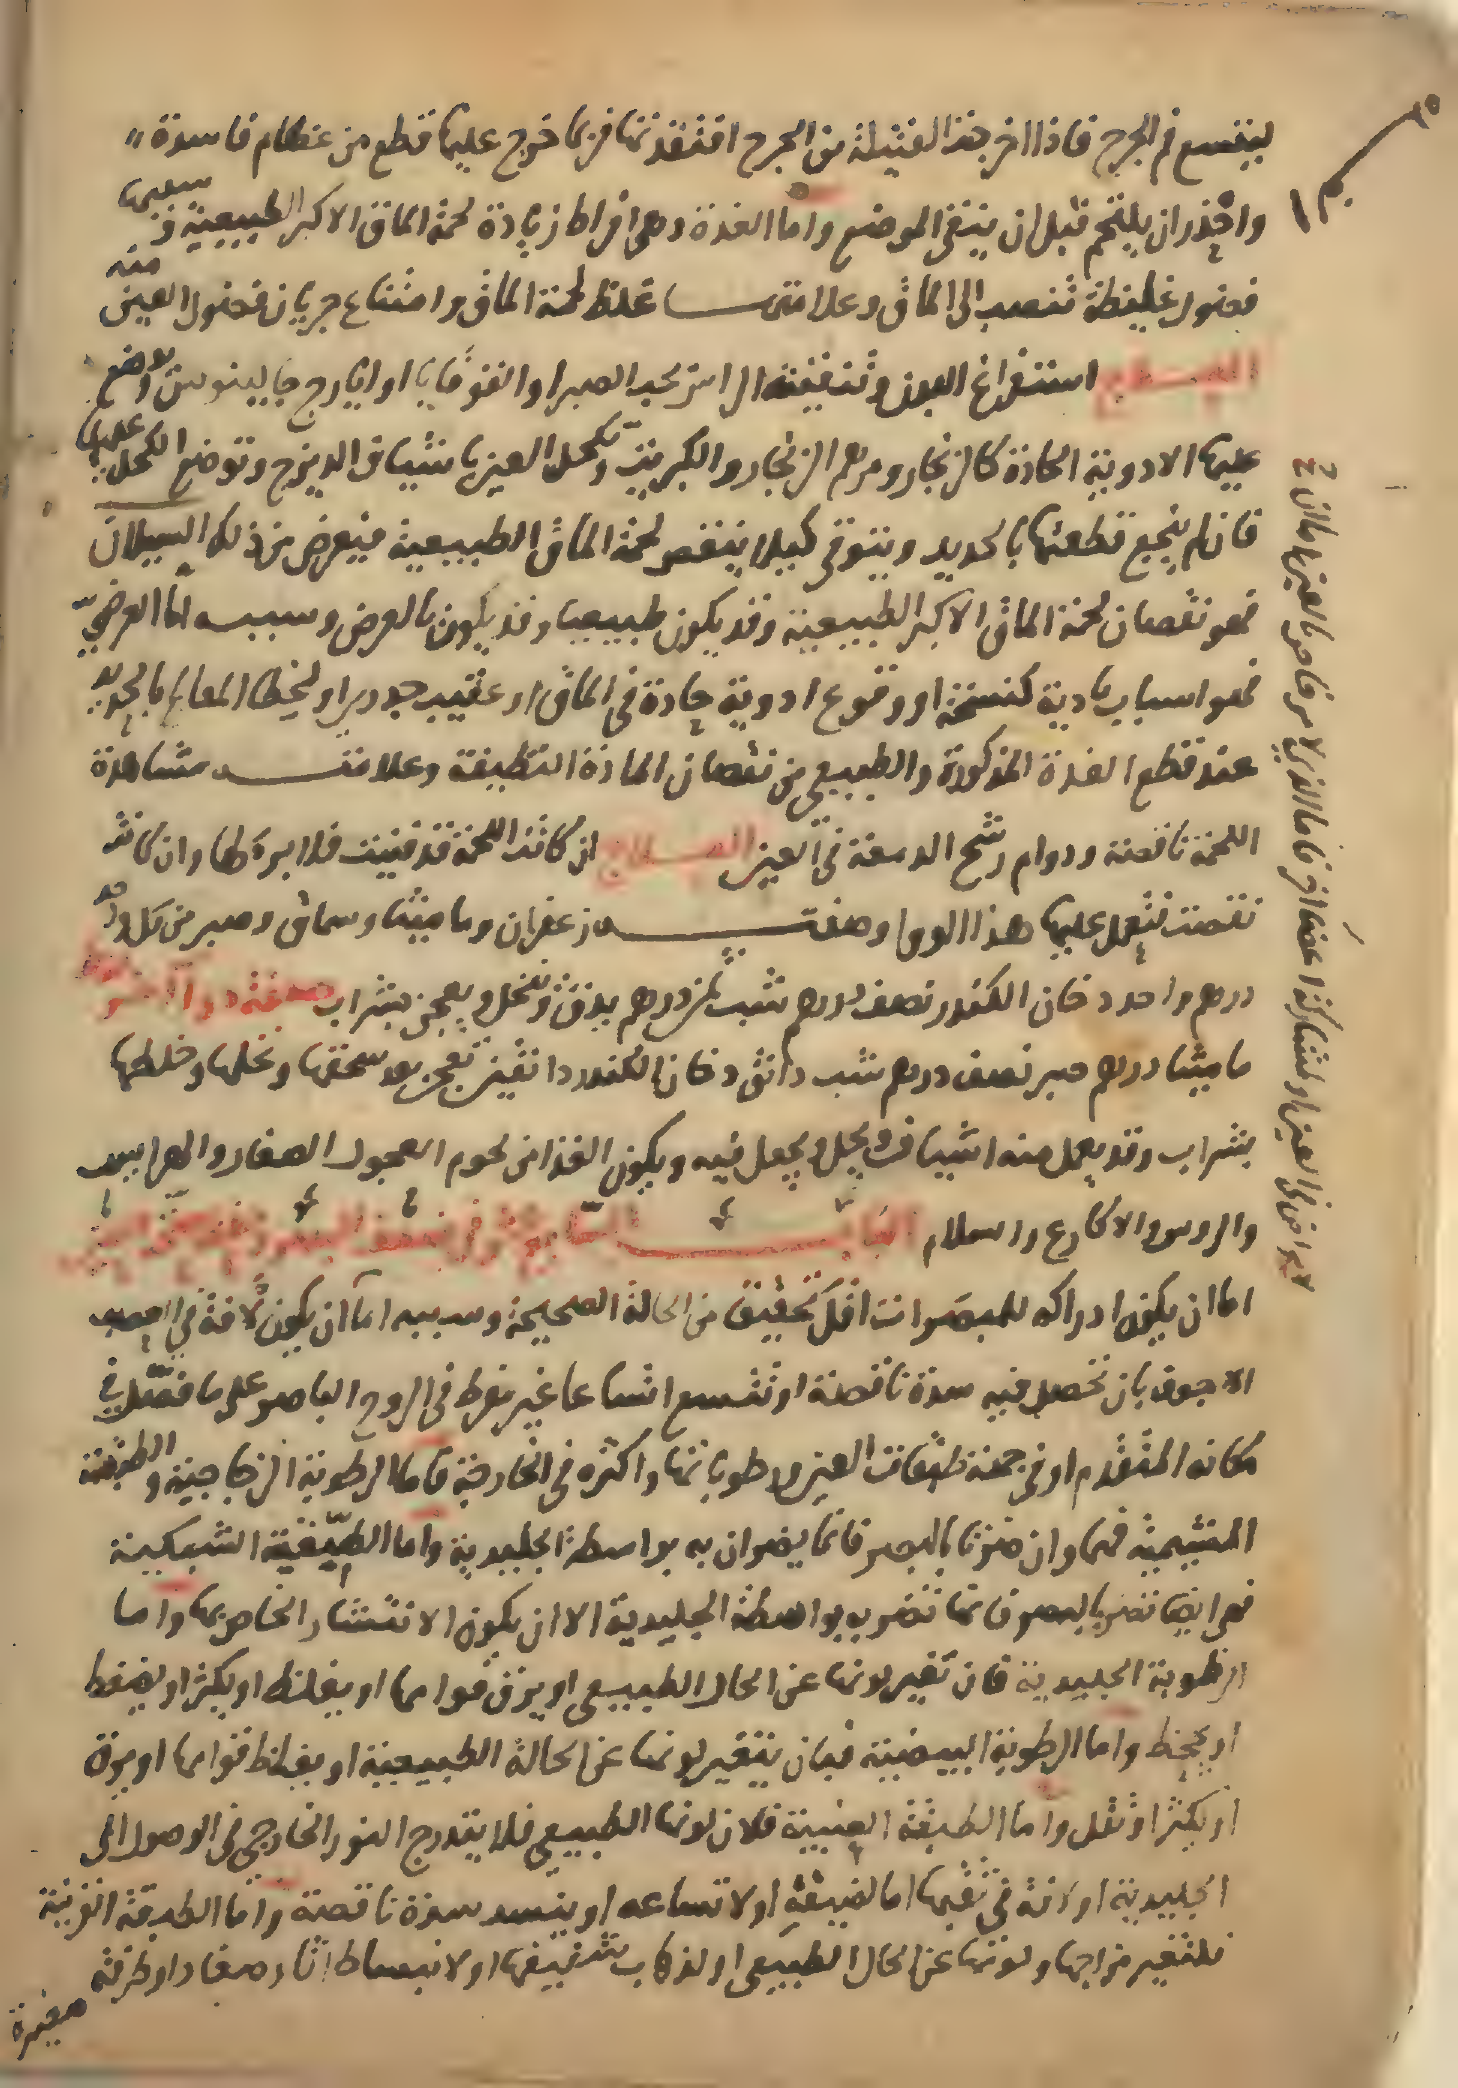 ليتسع فم الجرح فاذا اخرجت الفتيلة من الجرح افتقدتها فربما خرج عليها قطع من عظام فاسدة
واحذر ان يلتحم قبل ان ينقى الموضع واما الغدة وهي افراط زيادة لحمة الماق الاكبر الطبيعية وسببها
فضول غليظة تنصب الى الماق وعلامتها غلظ لحمة الماق وامتناع جريان فضول العين منه
العلاج استفراغ البدن وتنقية الراس بحب الصبر او القوقايا او ايارج جالينوس وضع
عليها الادوية الحادة كالزنجار ومرهم الزنجار والكبريت وتكحل العين باشياف الديزج وتوضع الكحل عليها
فان لم ينجع قطعتها بالحديد ويتوقى كيلا ينقص لحمة الماق الطبيعية فيعرض من ذلك السيلان
فهو نقصان لحمة الماق الاكبر الطبيعية وقد يكون طبيعيا وقد يكون بالعرض وسببه اما العرضي
فهو اسباب بادية او وقوع ادوية حادة في الماق او عقيب جدري او لخطا المعالج بالحديد
عند قطع الغدة المذكورة والطبيعي من نقصان المادة النطيفة وعلامته مشاهدة
اللحمة ناقصة ودوام رشح الدمعة في العين العلاج ان كانت اللحمة قد فنيت فلا برء لها وان كانت
نقصت فتعمل عليها هذا الدوا وصفته زعفران وماميثا وسماق وصبر من كل واحد
درهم واحد دخان الكندر نصف درهم شب ثمن درهم يدق وينخل ويعجن بشراب صفة دوا اخر
ماميثا درهم صبر نصف درهم شب دانق دخان الكندر دانقين تعجن بعد سحقها ونخلها وخلطها
بشراب وقد يعمل منه اشياف ويحل ويجعل فيه ويكون الغذا من لحوم العجول الصغار والهرايس
والروس والاكارع والسلام الباب السابع في ضعف البصر
اما ان يكون ادراكه للمبصرات اقل تحقيق من الحالة الصحيحة وسببه اما ان يكون لآفة في العصب
الاجوف بان تحصل فيه سدة ناقصة او تتسع اتساعا غير مفرط في الروح الباصر على ما فصل في
مكانه المتقدم او في جهة طبقات العين ورطوباتها واكثره في الخارجة فاما الرطوبة الزجاجية والطبقة
المشيمية فهما وان ضرتا بالبصر فانما يضران به بواسطة الجليدية واما الطبقة الشبكية
فهي ايضا تضر بالبصر فانما تضر به بواسطة الجليدية الا ان يكون الانتشار الخاص بها واما
الرطوبة الجليدية فان تغير لونها عن الحال الطبيعي او يرق قوامها او يغلظ او يكثر او يضغط
او يجحظ واما الرطوبة البيضية فبان يتغير لونها عن الحالة الطبيعية او يغلظ قوامها او يرق
او يكثر او تقل واما الطبقة العنبية فلان لونها الطبيعي فلا يتدرج النور الخارجي في الوصول الى
الجليدية او لافة في ثقبها اما لضيقه او لاتساعه او ينسد سدة ناقصة واما الطبقة القرنية
فلتغير مزاجها ولونها عن الحال الطبيعي او لذهاب شفيفها او لانبساط اثار صغار او طرفة
صغيرة